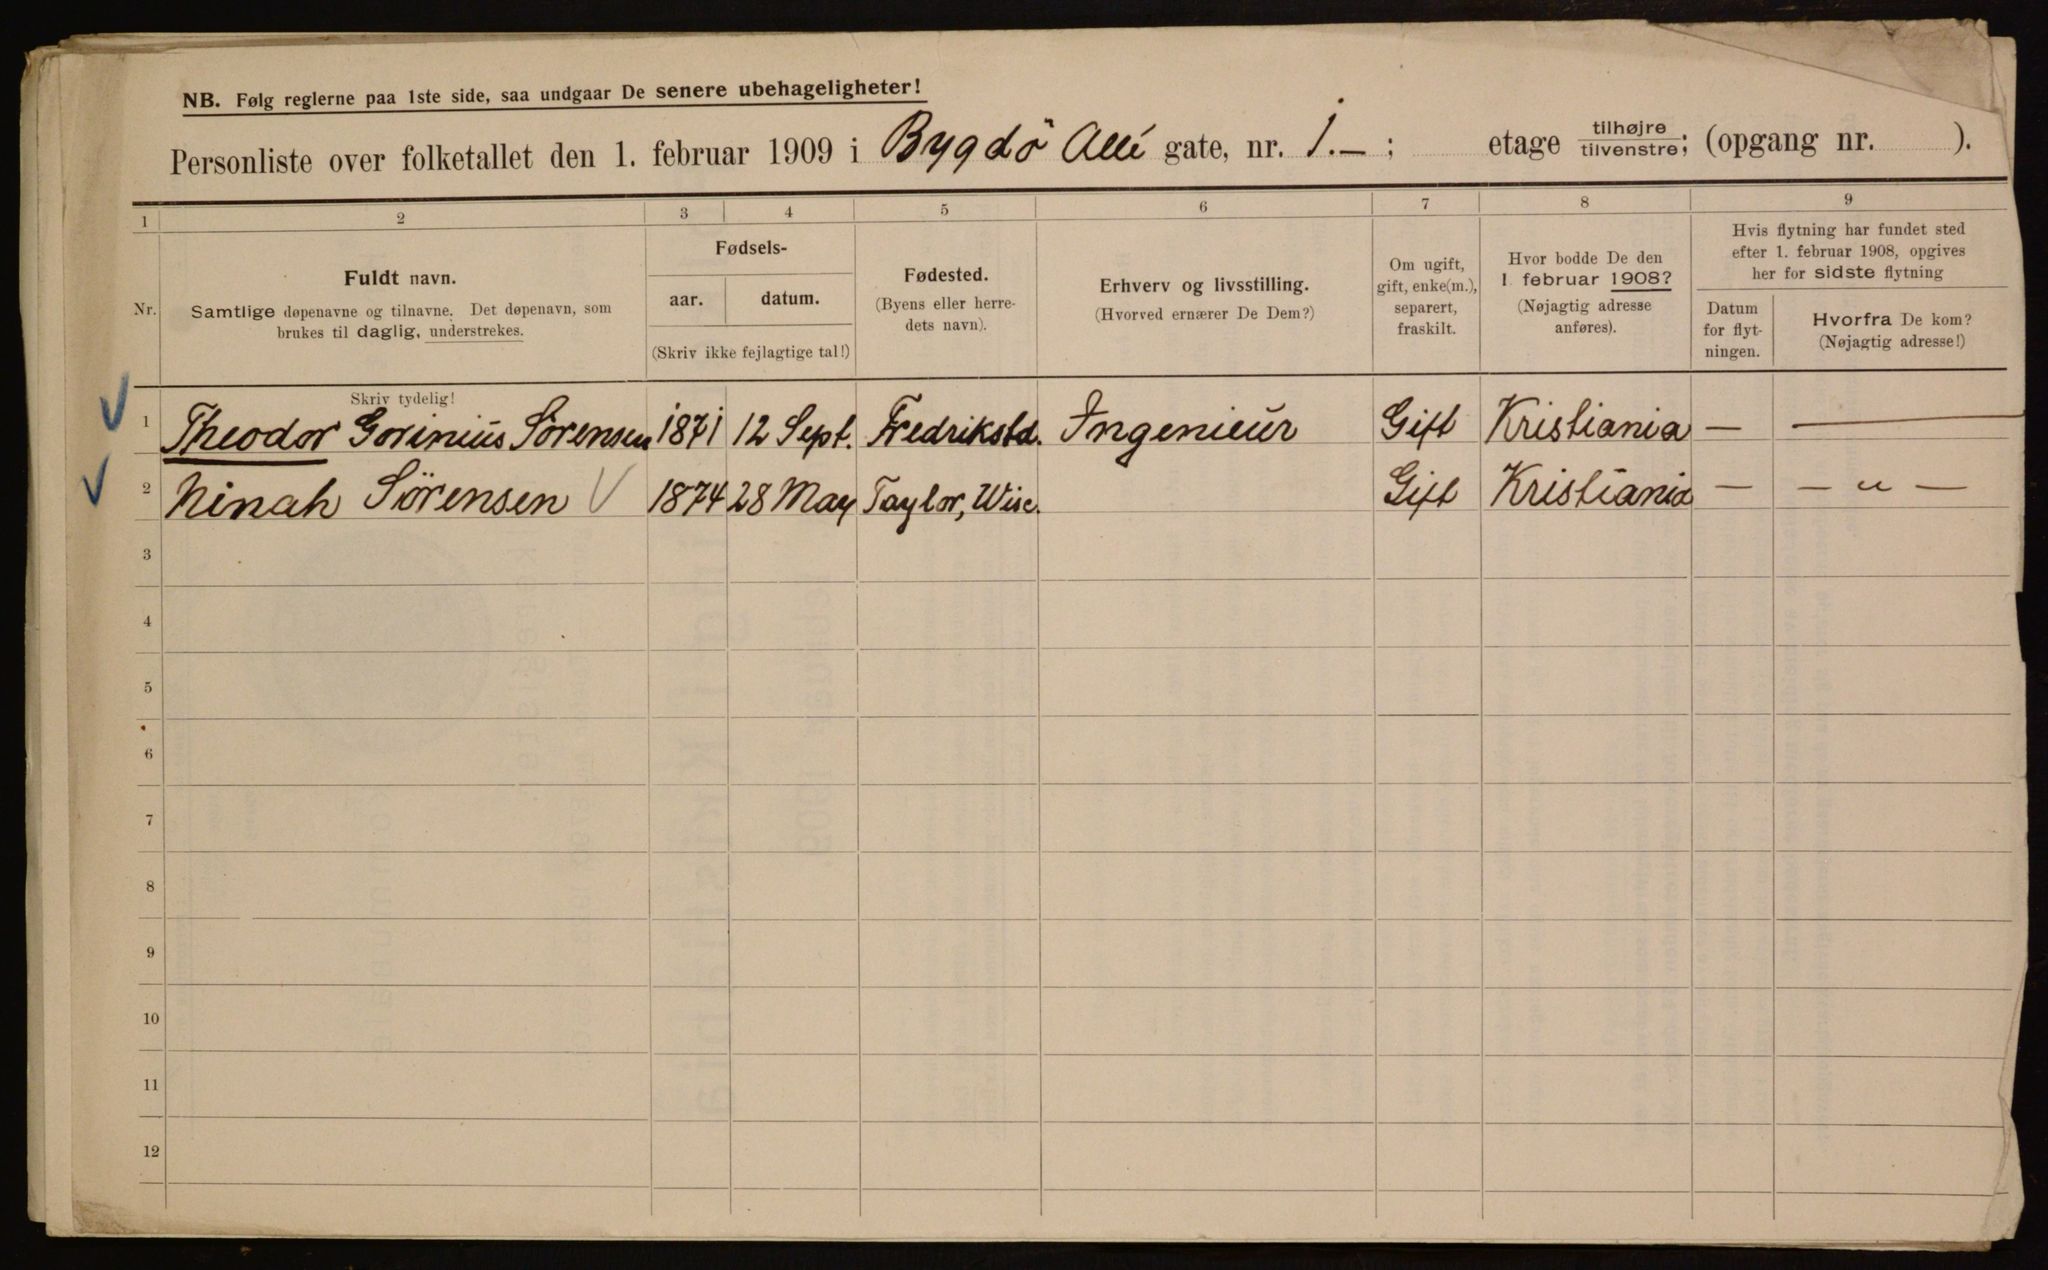 NB. Følg reglerne paa 1ste side, saa undgaar De senere ubehageligheter!
Personliste over folketallet den 1. februar 1909 i Bygdö Allé gate, nr. 1.— ; etage tilhøjre tilvenstre; (opgang nr. ).
1 2 3 4 5 6 7 8 9
Nr.
Fuldt navn.
Samtlige døpenavne og tilnavne. Det døpenavn, som
brukes til daglig, understrekes.
Fødsels-
aar. datum.
(Skriv ikke fejlagtige tal!)
Fødested.
(Byens eller herre-
dets navn).
Erhverv og livsstilling.
(Hvorved ernærer De Dem?)
Om ugift,
gift, enke(m.),
separert,
fraskilt.
Hvor bodde De den
1 februar 1908?
(Nøjagtig adresse
anføres).
Hvis flytning har fundet sted
efter 1. februar 1908, opgives
her for sidste flytning
Datum
for flyt-
ningen.
Hvorfra De kom?
(Nøjagtig adresse!)
Skriv tydelig!
1 Theodor Gorinius Sörensen 1871 12 Sept. Fredrikstd. Ingenieur Gift Kristiania — —
2 Ninah Sörensen 1874 28 May Taylor, Wisc. Gift Kristiania — — „ —
3
4
5
6
7
8
9
10
11
12